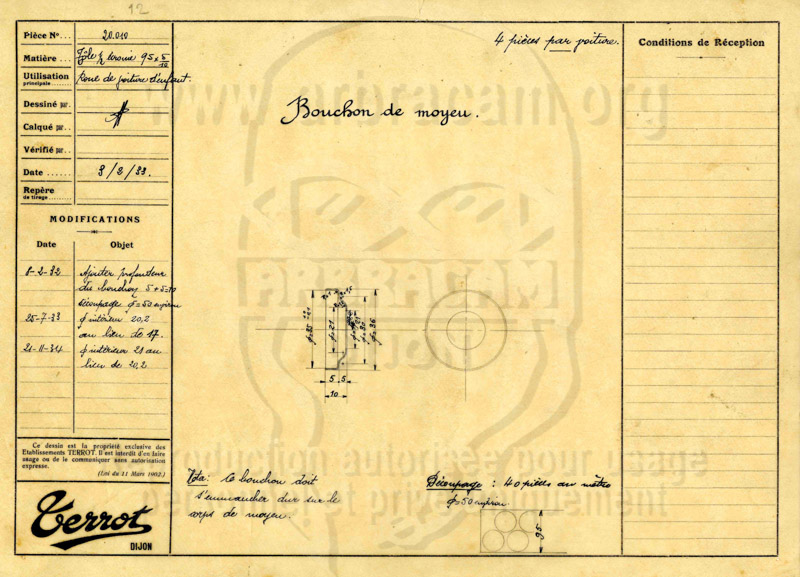 12
Pièce N°... 20.010
Matière ... Tôle 95 x 5/10
Utilisation principale... Roue de voiture d'enfant.
Dessiné par ..
Calqué par ..
Vérifié par ..
Date ...... 3/2/33.
Repère
de tirage........
MODIFICATIONS
Date Objet
8-2-32 Ajouter profondeur
du bouchon 5+5=10
découpage φ=50 environ
25-7-33 φ intérieur 20,2
au lieu de 17.
21-11-34 φ intérieur 21 au
lieu de 20,2
Ce dessin est la propriété exclusive des
Etablissements TERROT. Il est interdit d'en faire
usage ou de le communiquer sans autorisation
expresse.
(Loi du 11 Mars 1902.)
Terrot
DIJON
4 pièces par voiture.
Bouchon de moyeu.
φ=35
φ=21
φ=36
5 5
10
Nota: Ce bouchon doit
s'emmancher dur sur le
corps de moyeu.
Découpage : 40 pièces au mètre
φ=50 environ
95
Conditions de Réception
www.arbracam.org
ARBRACAM
DIJON